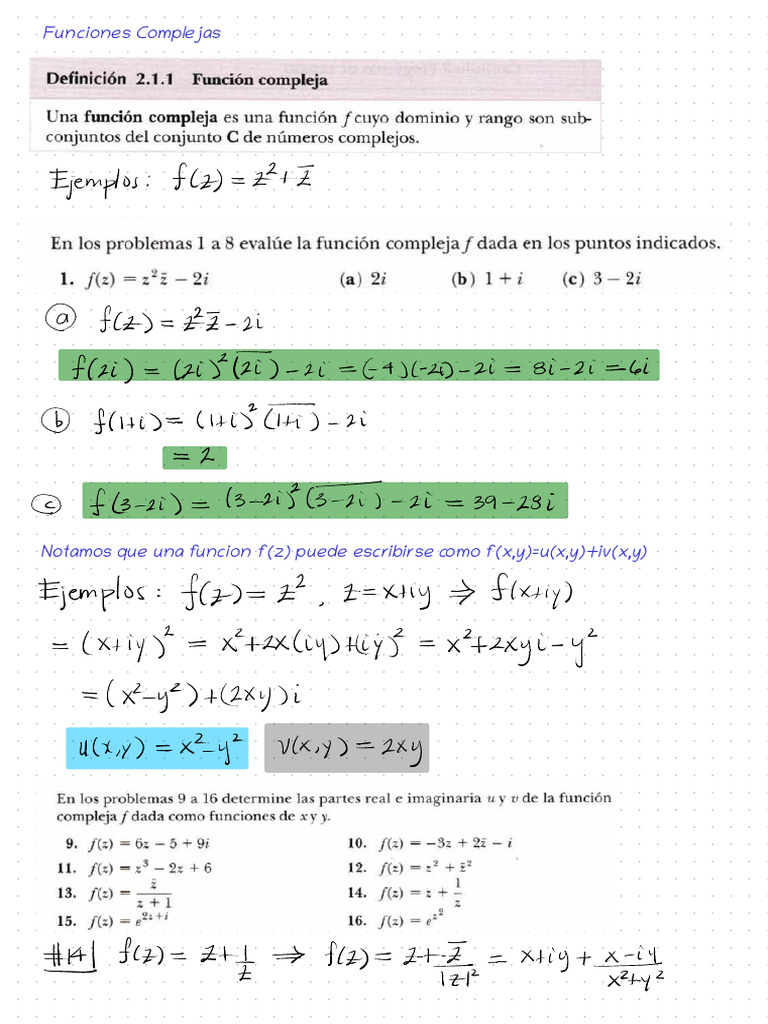 Funciones Complejas
Definición 2.1.1 Función compleja
Una función compleja es una función f cuyo dominio y rango son sub-
conjuntos del conjunto C de números complejos.
Ejemplos: f(z) = z² + z̄
En los problemas 1 a 8 evalúe la función compleja f dada en los puntos indicados.
1. f(z) = z² z̄ − 2i (a) 2i (b) 1 + i (c) 3 − 2i
(a) f(z) = z² z̄ − 2i
f(2i) = (2i)² (\overline{2i}) − 2i = (−4)(−2i) − 2i = 8i − 2i = 6i
(b) f(1+i) = (1+i)² (\overline{1+i}) − 2i
= 2
(c) f(3−2i) = (3−2i)² (\overline{3−2i}) − 2i = 39 − 28i
Notamos que una funcion f(z) puede escribirse como f(x,y)=u(x,y)+iv(x,y)
Ejemplos: f(z) = z², z = x+iy ⇒ f(x+iy)
= (x+iy)² = x² + 2x(iy) + (iy)² = x² + 2xyi − y²
= (x² − y²) + (2xy)i
u(x,y) = x² − y² v(x,y) = 2xy
En los problemas 9 a 16 determine las partes real e imaginaria u y v de la función
compleja f dada como funciones de x y y.
9. f(z) = 6z − 5 + 9i 10. f(z) = −3z + 2z̄ − i
11. f(z) = z³ − 2z + 6 12. f(z) = z² + z̄²
13. f(z) = z̄/(z + 1) 14. f(z) = z + 1/z
15. f(z) = e^{2z+i} 16. f(z) = e^{z²}
#14| f(z) = z + 1/z ⇒ f(z) = z + z̄/|z|² = x+iy + (x−iy)/(x²+y²)